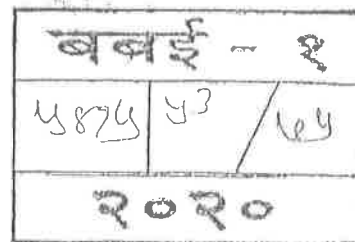 बबई - १
५४७५ ५३ / ७५
२०२०